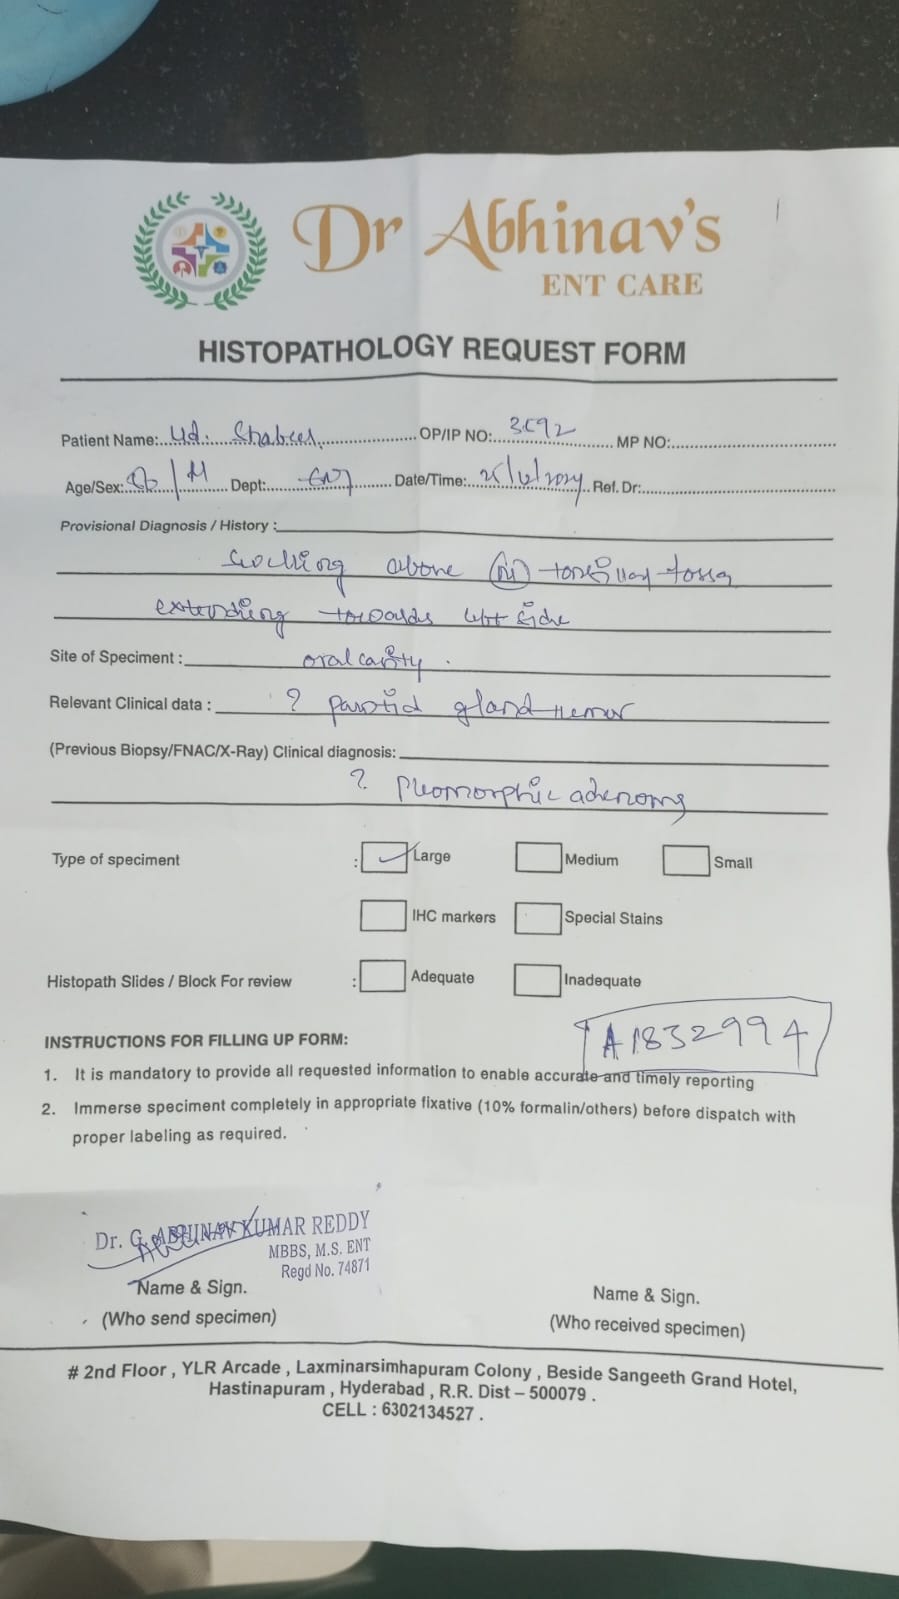 Dr Abhinav's
ENT CARE
HISTOPATHOLOGY REQUEST FORM
Patient Name: Md. OP/IP NO: MP NO:
Age/Sex: /M Dept: ENT Date/Time: Ref. Dr:
Provisional Diagnosis / History :
Swelling above tonsillar fossa
extending towards left side
Site of Specimen : oral cavity.
Relevant Clinical data : ? parotid gland
(Previous Biopsy/FNAC/X-Ray) Clinical diagnosis:
? Pleomorphic adenoma
Type of specimen : Large Medium Small
IHC markers Special Stains
Histopath Slides / Block For review : Adequate Inadequate
A1832994
INSTRUCTIONS FOR FILLING UP FORM:
1. It is mandatory to provide all requested information to enable accurate and timely reporting
2. Immerse speciment completely in appropriate fixative (10% formalin/others) before dispatch with
proper labeling as required.
Dr. G. ABHINAV KUMAR REDDY
MBBS, M.S. ENT
Regd No. 74871
Name & Sign. Name & Sign.
(Who send specimen) (Who received specimen)
# 2nd Floor , YLR Arcade , Laxminarsimhapuram Colony , Beside Sangeeth Grand Hotel,
Hastinapuram , Hyderabad , R.R. Dist – 500079 .
CELL : 6302134527 .